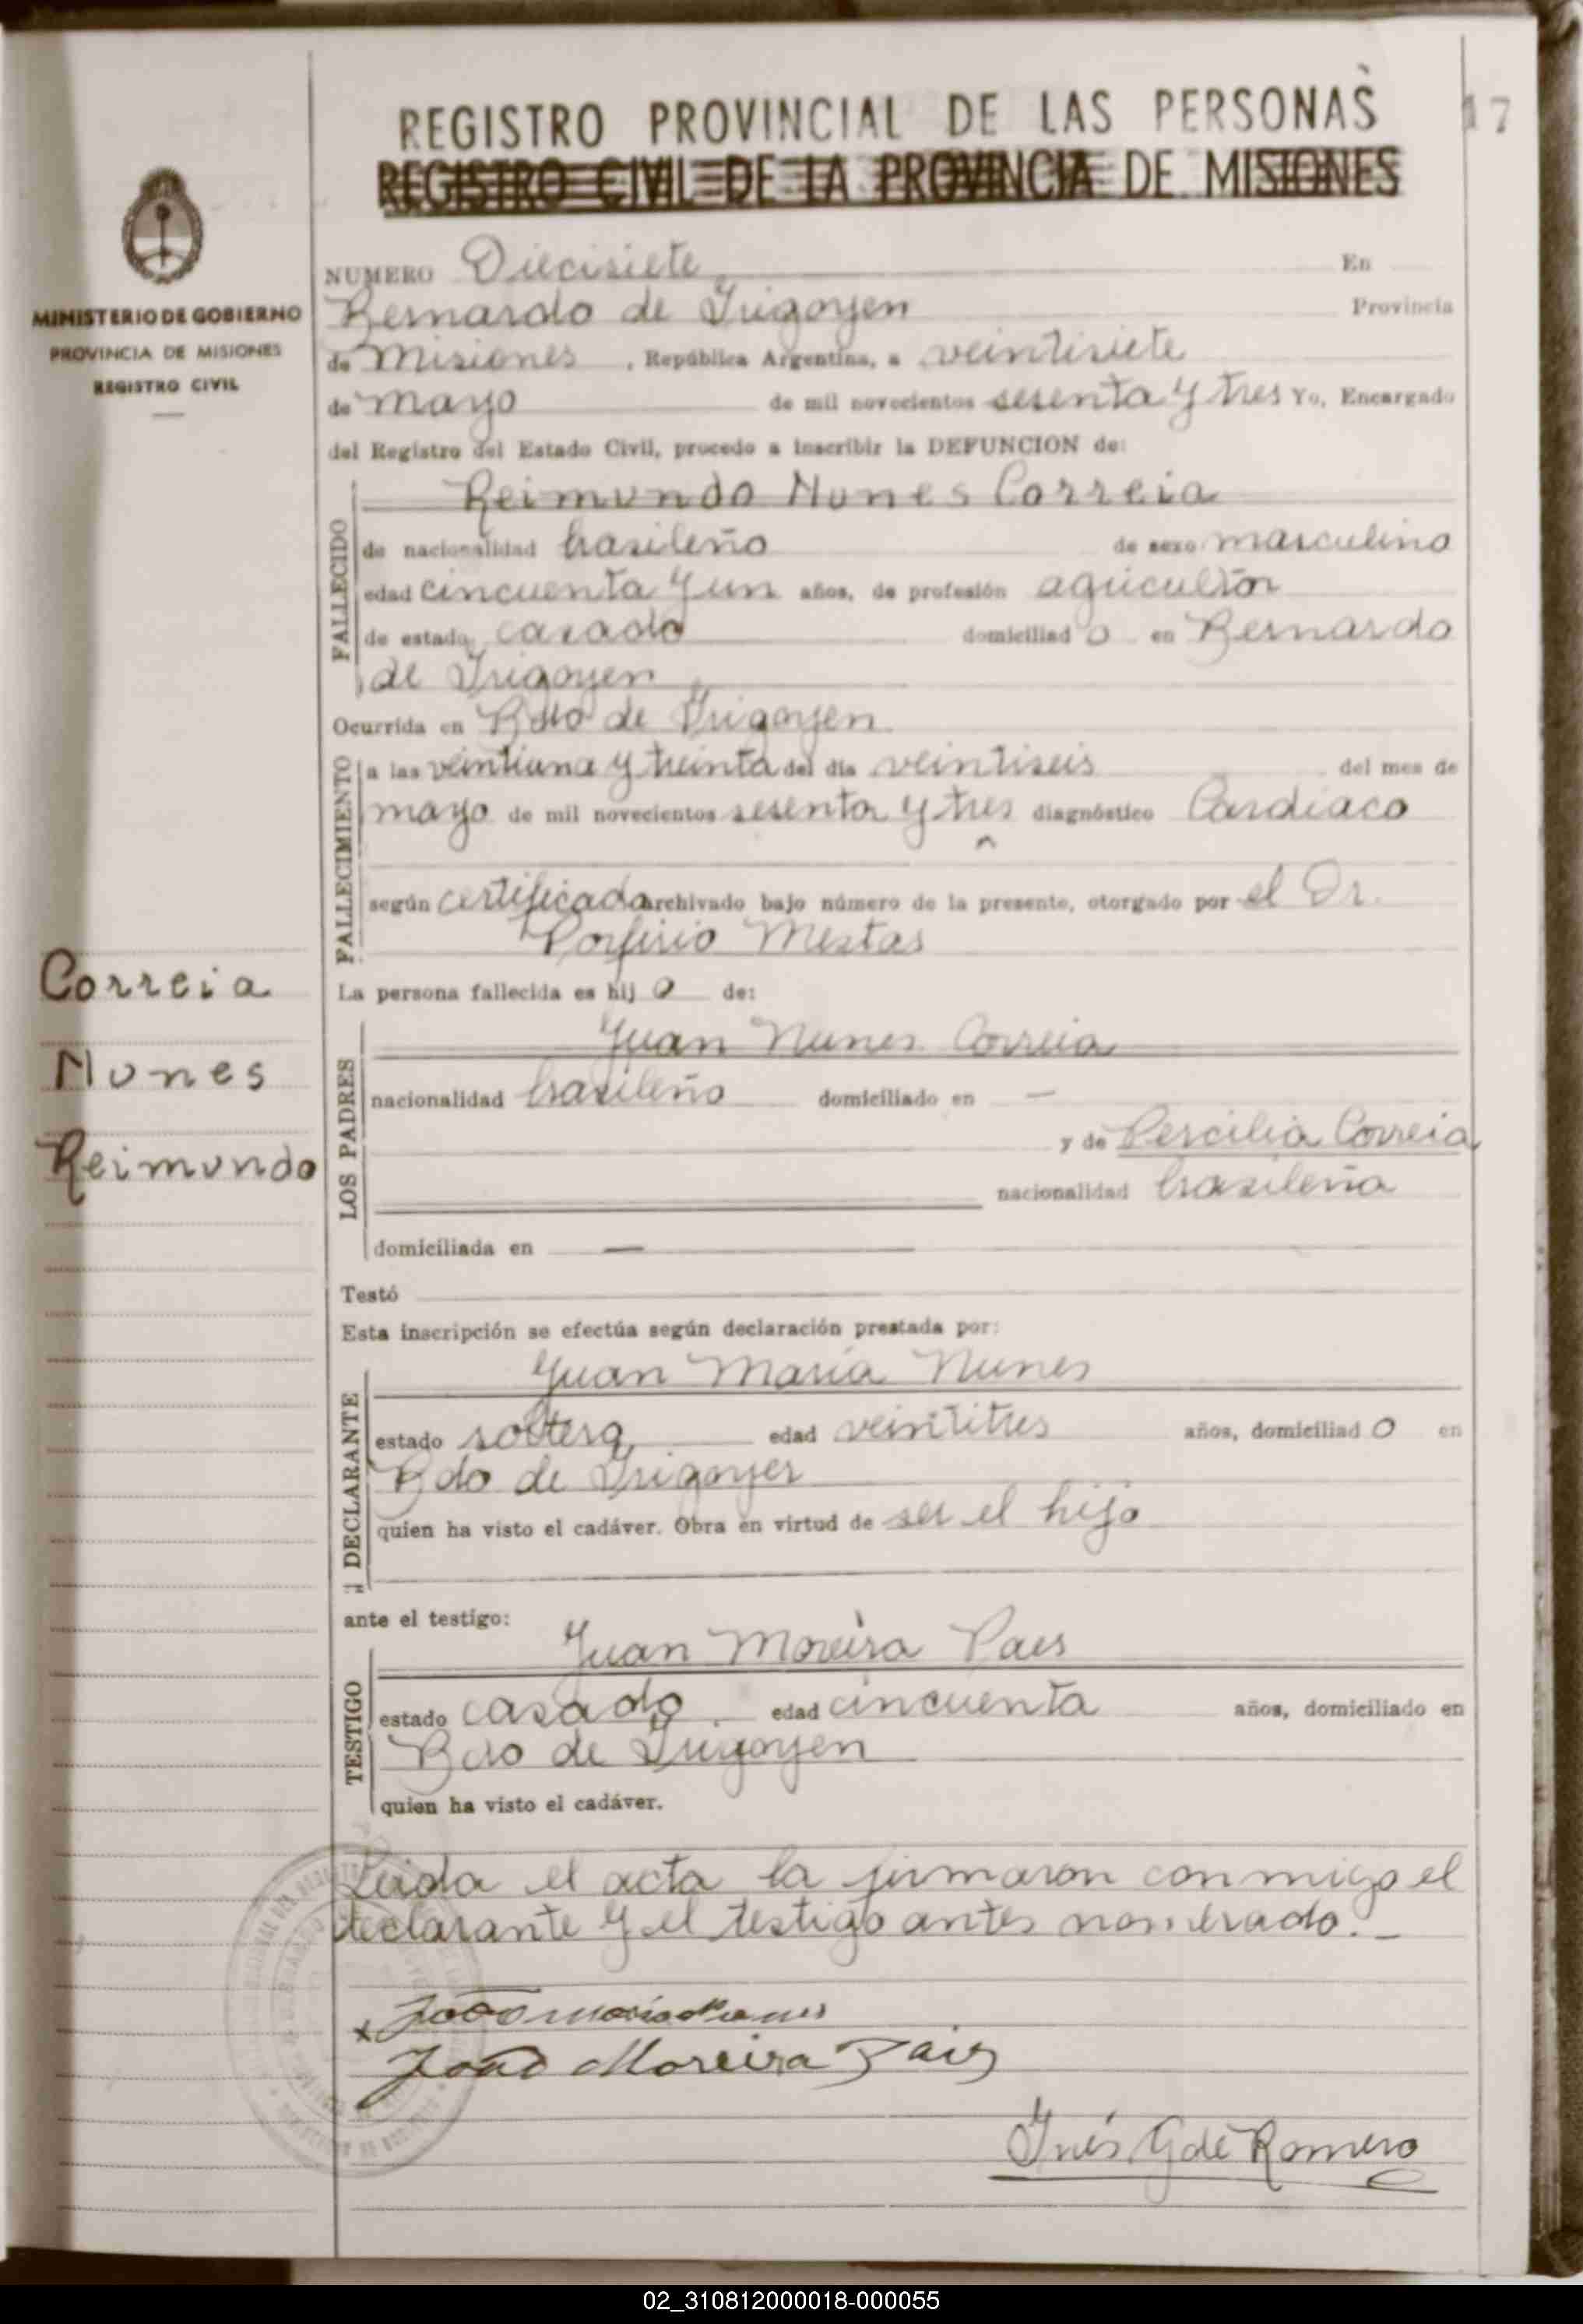 REGISTRO PROVINCIAL DE LAS PERSONAS
17
REGISTRO CIVIL DE LA PROVINCIA DE MISIONES
MINISTERIO DE GOBIERNO
PROVINCIA DE MISIONES
REGISTRO CIVIL
NUMERO Diecisiete En
Bernardo de Irigoyen Provincia
de Misiones , República Argentina, a veintisiete
de mayo de mil novecientos sesenta y tres Yo, Encargado
del Registro del Estado Civil, procedo a inscribir la DEFUNCION de:
FALLECIDO
Reimundo Nunes Correia
de nacionalidad brasileño de sexo masculino
edad cincuenta y un años, de profesión agricultor
de estado casado domiciliad o en Bernardo
de Irigoyen
Ocurrida en Bdo de Irigoyen
FALLECIMIENTO
a las veintiuna y treinta del dia veintiseis del mes de
mayo de mil novecientos sesenta y tres diagnóstico Cardiaco
según certificado archivado bajo número de la presente, otorgado por el Dr.
Porfirio Mestas
La persona fallecida es hij o de:
LOS PADRES
Juan Nunes Correia
nacionalidad brasileño domiciliado en —
y de Percilia Correia
nacionalidad brasileña
domiciliada en —
Testó
Esta inscripción se efectúa según declaración prestada por:
DECLARANTE
Juan Maria Nunes
estado soltero, edad veintitres años, domiciliad o en
Bdo de Irigoyen
quien ha visto el cadáver. Obra en virtud de ser el hijo
ante el testigo:
TESTIGO
Juan Moreira Paes
estado casado. edad cincuenta años, domiciliado en
Bdo de Irigoyen
quien ha visto el cadáver.
Leida el acta la firmaron conmigo el
declarante y el testigo antes nombrado.—
x João Maria Nunes
João Moreira Pais
Inés G de Romero
Correia
Nunes
Reimundo
02_310812000018-000055